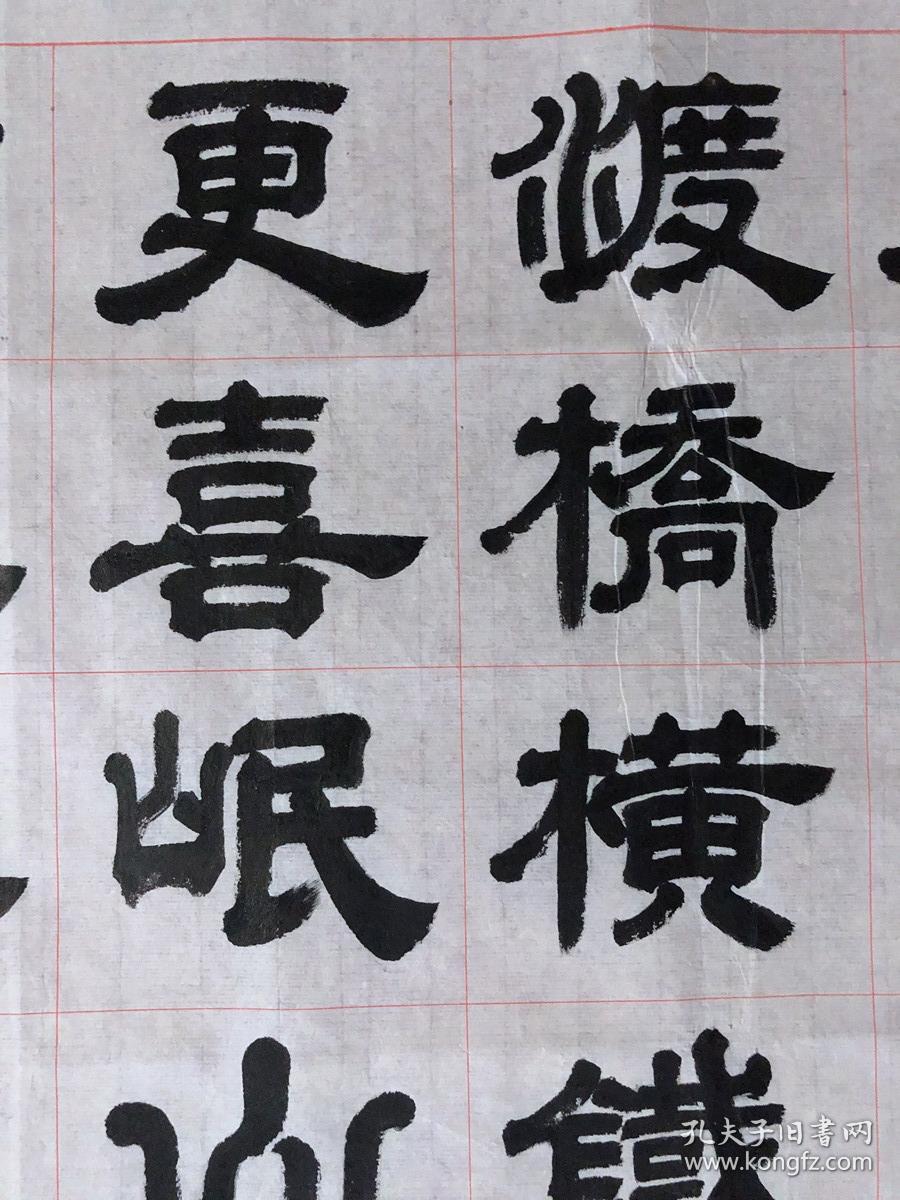 渡橋横鐵
更喜岷山
孔夫子旧書网
www.kongfz.com